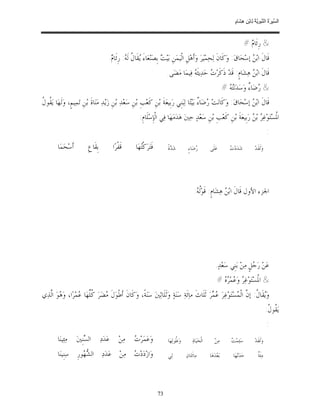 السيرة النبوية لابن هشام
& رئام #
قَالَ ابْنُ إسْحَاقَ: وَكَانَ لِحِمْيَرَ وَأَهْلِ الْيَمَنِ بَيْتٌ بِصَنْعَاءَ يُقَالُ لَهُ: رِئَامٌ
قَالَ ابْنُ هِشَامٍ: قَدْ ذَكَرْتُ حَدِيثَهُ فِيمَا مَضَى
& رُضَاءٌ وَسَدَنَتُهُ #
قَالَ ابْنُ إسْحَاقَ: وَكَانَتْ رُضَاءٌ بَيْتًا لِبَنِي رَبِيعَةَ بْنِ كَعْبِ بْنِ سَعْدِ بْنِ زَيْدِ مَنَاةَ بْنِ تَمِيمٍ، وَلَهَا يَقُولُ
الْمُسْتَوْغِرُ بْنُ رَبِيعَةَ بْنِ كَعْبِ بْنِ سَعْدٍ حِينَ هَدَمَهَا فِي الْإِسْلَامِ
:
وَلَقَدْ شَدَدْتُ عَلَى رُضَاءٍ شَدَّةً فَتَرَكْتُهَا قَفْرًا بِقَاعٍ أَسْحَمَا
الجزء الأول قَالَ ابْنُ هِشَامٍ: قَوْلُهُ
:
عَنْ رَجُلٍ مِنْ بَنِي سَعْدٍ
& الْمُسْتَوْغِرُ وَعُمْرُهُ #
وَيُقَالُ: إنَّ الْمُسْتَوْغِرَ عُمِّرَ ثَلَاثَ مِائَةِ سَنَةٍ وَثَلَاثِينَ سَنَةً، وَكَانَ أَطْوَلَ مُضَرَ كُلِّهَا عُمْرًا، وَهُوَ الَّذِي
يَقُولُ
:
وَلَقَدْ سَئِمْتُ مِنْ الْحَيَاةِ وَطُولِهَا وَعَمَرْتُ مِنْ عَدَدِ السِّنِينَ مِئِينَا
مِئَةً حَدَتْهَا بَعْدَهَا مِئَتَانِ لِي وَازْدَدْتُ مِنْ عَدَدِ الشُّهُورِ سِنِينَا
73